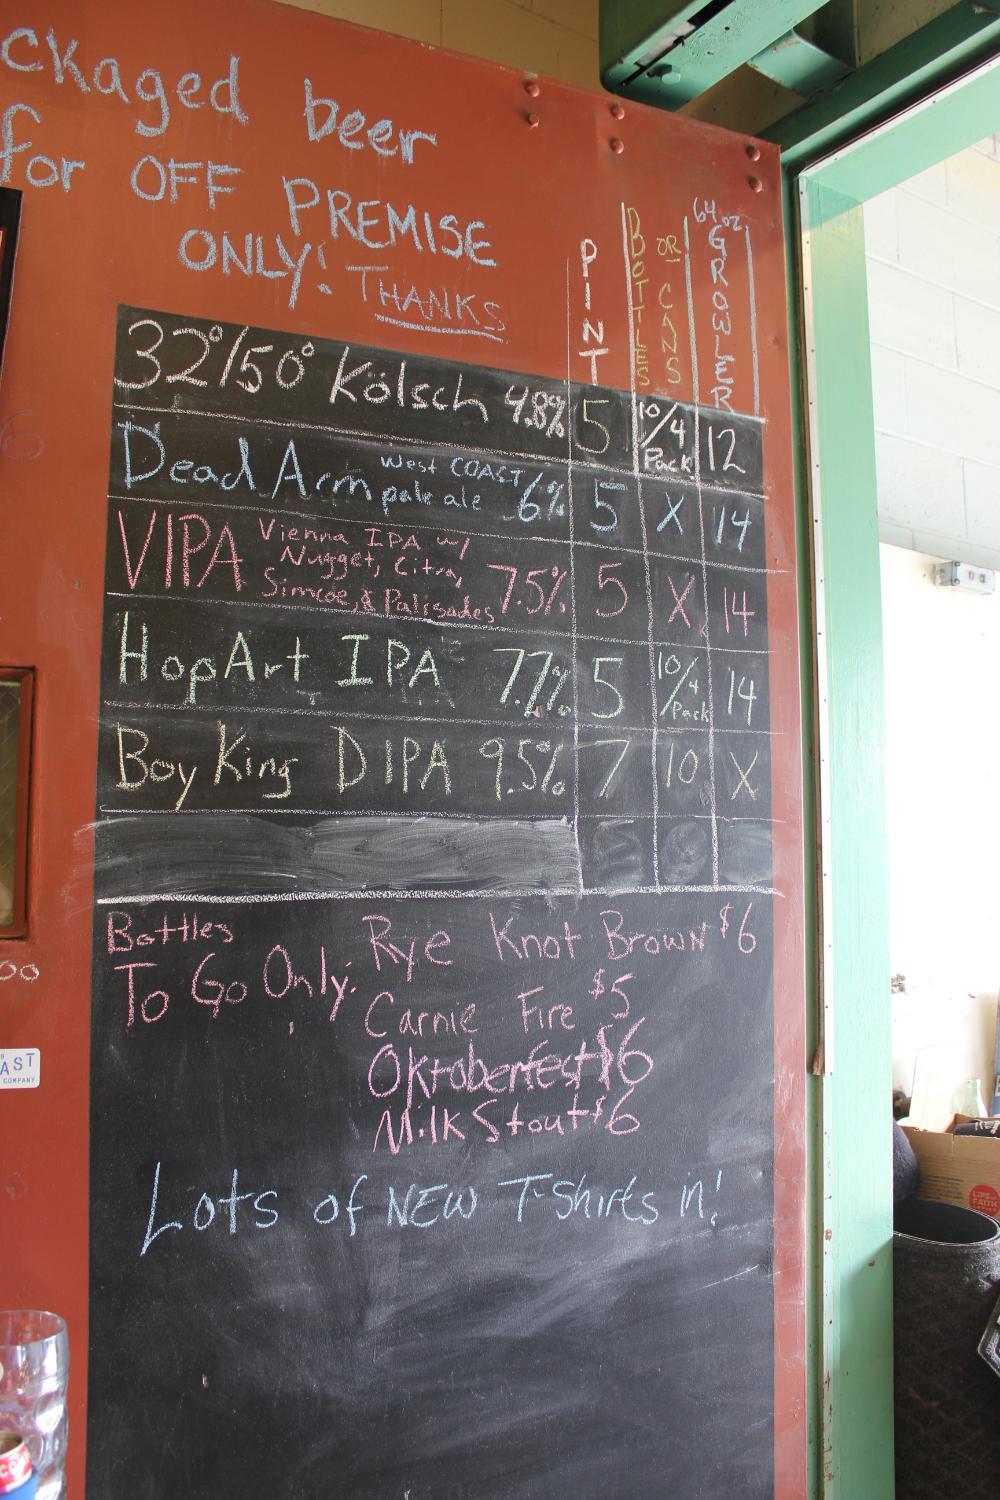 ckaged beer
for OFF PREMISE
ONLY! THANKS
PINT
BOTTLES
OR CANS
64 oz GROWLER
32°/50° Kölsch 4.8% 5 10/4 Pack 12
Dead Arm West COAST pale ale 6% 5 X 14
VIPA Vienna IPA w/
Nugget, Citra,
Simcoe, & Palisades 7.5% 5 X 14
HopArt IPA 7.7% 5 10/4 Pack 14
Boy King DIPA 9.5% 7 10 X
Bottles
To Go Only:
Rye Knot Brown $6
Carnie Fire $5
Oktoberfest $6
Milk Stout $6
Lots of NEW T-Shirts in!
AST
COMPANY
LIPS OF
FAITH